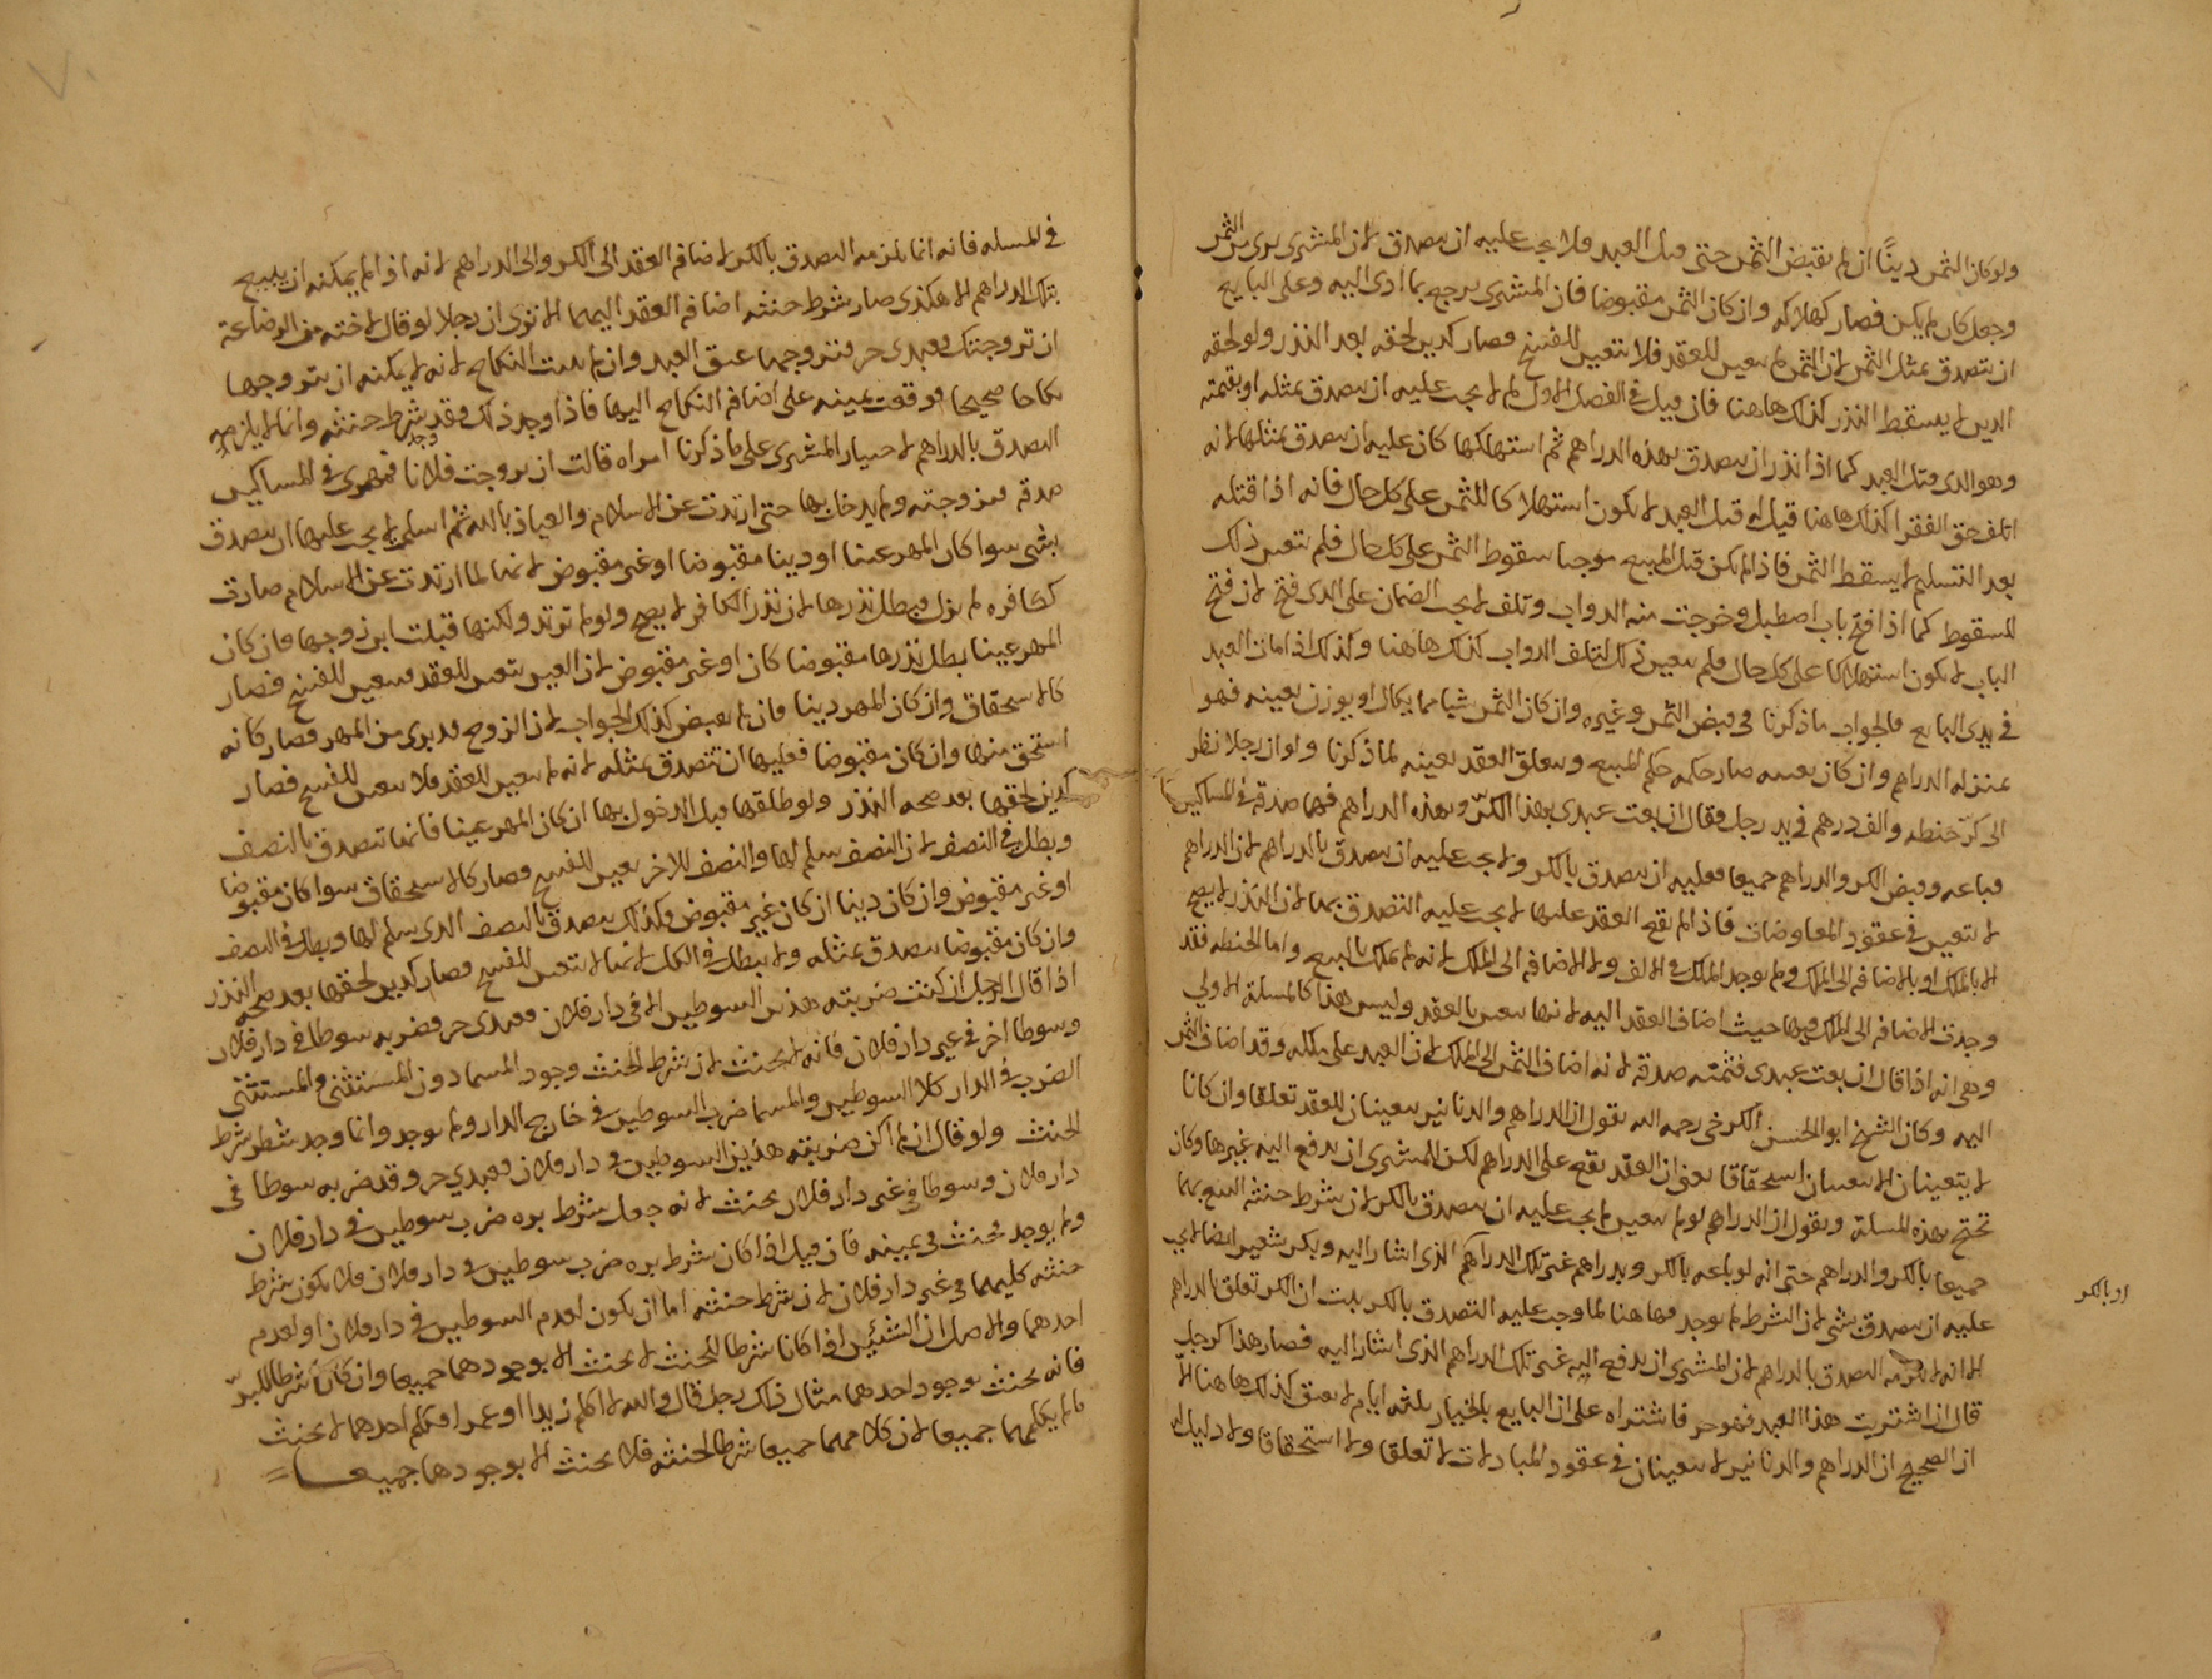 ولو كان الثمن دينًا ان لم يقبض الثمن حتى قتل العبد فلا يجب عليه ان يتصدق لان المشترى برى من الثمن
وجعل كان لم يكن فصار كهلاكه وان كان الثمن مقبوضا فان المشترى يرجع بما ادى اليه وعلى البايع
ان يتصدق بمثل الثمن لان الثمن لم يتعين للعقد فلا يتعين للفسخ فصار كدين لحقه بعد النذر ولو لحقه
الدين لا يسقط النذر كذلك هاهنا فان قيل فى الفصل الاول لم لا يجب عليه ان يتصدق بمثله او بقيمته
وهو الذى قتل العبد كما اذا نذر ان يتصدق بهذه الدراهم ثم استهلكها كان عليه ان يتصدق بمثلها لانه
اتلف حق الفقرا كذلك هاهنا قيل له قتل العبد لا يكون استهلاكا للثمن على كل حال فانه اذا قتله
بعد التسليم لا يسقط الثمن فاذا لم يكن قتل المبيع موجبا سقوط الثمن على كل حال فلم يتعين ذلك
للسقوط كما اذا فتح باب اصطبل وخرجت منه الدواب وتلف لا يجب الضمان على الذى فتح لان فتح
الباب لا يكون استهلاكا على كل حال فلم يتعين ذلك لتلف الدواب كذلك هاهنا وكذلك اذا مات العبد
فى يدى البايع فالجواب ما ذكرنا فى قبض الثمن وغيره وان كان الثمن شيا مما يكال او يوزن بعينه فهو
بمنزله الدراهم وان كان بعينه صار حكمه حكم المبيع ويتعلق العقد بعينه لما ذكرنا ولو ان رجلا نظر
الى كرّ حنطه والف درهم فى يد رجل فقال ان بعت عبدى بهذا الكرّ وبهذه الدراهم فهما صدقه فى المساكين
فباعه وقبض الكر والدراهم جميعا فعليه ان يتصدق بالكر ولا يجب عليه ان يتصدق بالدراهم لان الدراهم
لا تتعين فى عقود المعاوضات فاذا لم يقع العقد عليها لا يجب عليه التصدق بها لان النذر لا يصح
الا بالملك او بالاضافه الى الملك ولم يوجد الملك فى الالف ولا الاضافه الى الملك لانه لم يملك بالبيع واما الحنطه فقد
وجدت الاضافه الى الملك فيها حيث اضاف العقد اليه لانها تتعين بالعقد وليس هذا كالمسلة الاولى
وهى انه اذا قال ان بعت عبدى فثمنه صدقه لانه اضاف الثمن الى الملك لان العبد على ملكه وقد اضاف الثمن
اليه وكان الشيخ ابو الحسن الكرخى رحمه الله يقول ان الدراهم والدنانير يتعينان للعقد تعلقا وان كانا
لا يتعينان الا يتعينان استحقاقا يعنى ان العقد يقع على الدراهم لكن للمشترى ان يدفع اليه غيرها وكان
تحتج بهذه المسلة ويقول ان الدراهم لو لم تتعين لم يجب عليه ان يتصدق بالكر لان شرط حنثه البيع بهما
جميعا بالكر والدراهم حتى انه لو باعه بالكر وبدراهم غير تلك الدراهم الذى اشار اليه وبكر شعير ايضا لا يجب
عليه ان يتصدق بشى لان الشرط لم يوجد فهاهنا لما وجب عليه التصدق بالكر ثبت ان الكر تعلق بالدراهم
او بالكر
الا انه لا يلزمه التصدق بالدراهم لان للمشترى ان يدفع اليه غير تلك الدراهم الذى اشار اليه فصار هذا كرجل
قال ان اشتريت هذا العبد فهو حر فاشتراه على ان البايع بالخيار ثلثه ايام لا يعتق كذلك هاهنا الا
ان الصحيح ان الدراهم والدنانير لا يتعينان فى عقود المبادلات لا تعلقا ولا استحقاقا ولا دليل له
فى المسله فانه انما يلزمه التصدق بالكر لاضافه العقد الى الكر والى الدراهم لانه اذا لم يمكنه ان يبيع
بتلك الدراهم الا هكذى صار شرط حنثه اضافه العقد اليهما الا ترى ان رجلا لو قال لاخته من الرضاعة
ان تزوجتك فعبدى حر فتزوجها عتق العبد وان لم يثبت النكاح لانه لا يمكنه ان يتزوجها
نكاحا صحيحا فوقعت يمينه على اضافه النكاح اليها فاذا وجد ذلك فقد وجد شرط حنثه وانما لا يلزمه
التصدق بالدراهم لاختيار المشترى على ما ذكرنا امراه قالت ان تزوجت فلانا فمهرى فى المساكين
صدقه فتزوجته ولم يدخل بها حتى ارتدت عن الاسلام والعياذ بالله ثم اسلمت لا يجب عليها ان تتصدق
بشى سوا كان المهر عينا او دينا مقبوضا او غير مقبوض لانها لما ارتدت عن الاسلام صارت
كافره لم يزل فبطل نذرها لان نذر الكافر لا يصح ولو لم ترتد ولكنها قبلت ابن زوجها فان كان
المهر عينا بطل نذرها مقبوضا كان او غير مقبوض لان العين تتعين للعقد فيتعين للفسخ فصار
كالاستحقاق وان كان المهر دينا فان لم يقبض كذلك الجواب لان الزوج قد برى من المهر فصار كانه
استحق منها وان كان مقبوضا فعليها ان تتصدق بمثله لانه لم يتعين للعقد فلا يتعين للفسخ فصار
كدين لحقها بعد صحه النذر ولو طلقها قبل الدخول بها ان كان المهر عينا فانما تتصدق بالنصف
وبطل فى النصف لان النصف سلم لها والنصف للاخر يتعين للفسخ فصار كالاستحقاق سوا كان مقبوضا
او غير مقبوض وان كان دينا ان كان غير مقبوض وكذلك يتصدق بالنصف الذى سلم لها وبطل فى النصف
وان كان مقبوضا يتصدق بمثله ولا يبطل فى الكل لانها لا تتعين للفسخ فصار كدين لحقها بعد صحه النذر
اذا قال الرجل ان كنت ضربته هذين السوطين الا فى دار فلان فعبدى حر فضربه سوطا فى دار فلان
وسوطا اخر فى غير دار فلان فانه لا يحنث لان شرط الحنث وجود المسما دون المستثنى والمستثنى
الضرب فى الدار كلا السوطين والمسما ضرب السوطين فى خارج الدار ولم يوجد وانما وجد شطر شرط
الحنث ولو قال ان لم اكن ضربته هذين السوطين فى دار فلان فعبدي حر وقد ضربه سوطا فى
دار فلان وسوطا فى غير دار فلان يحنث لانه جعل شرط بره ضرب سوطين فى دار فلان
ولم يوجد فحنث فى يمينه فان قيل اذا كان شرط بره ضرب سوطين فى دار فلان فلا يكون شرط
حنثه كليهما فى غير دار فلان لان شرط حنثه اما ان يكون لعدم السوطين فى دار فلان او لعدم
احدهما والاصل ان الشئين اذا كانا شرطا للحنث لا يحنث الا بوجودهما جميعا وان كانا شرطا للبرّ
فانه يحنث بوجود احدهما مثال ذلك رجل قال والله لا اكلم زيدا او عمرا فكلم احدهما لا يحنث
ما لم يكلمهما جميعا لان كلامهما جميعا شرط لحنثه فلا يحنث الا بوجودهما جميعا